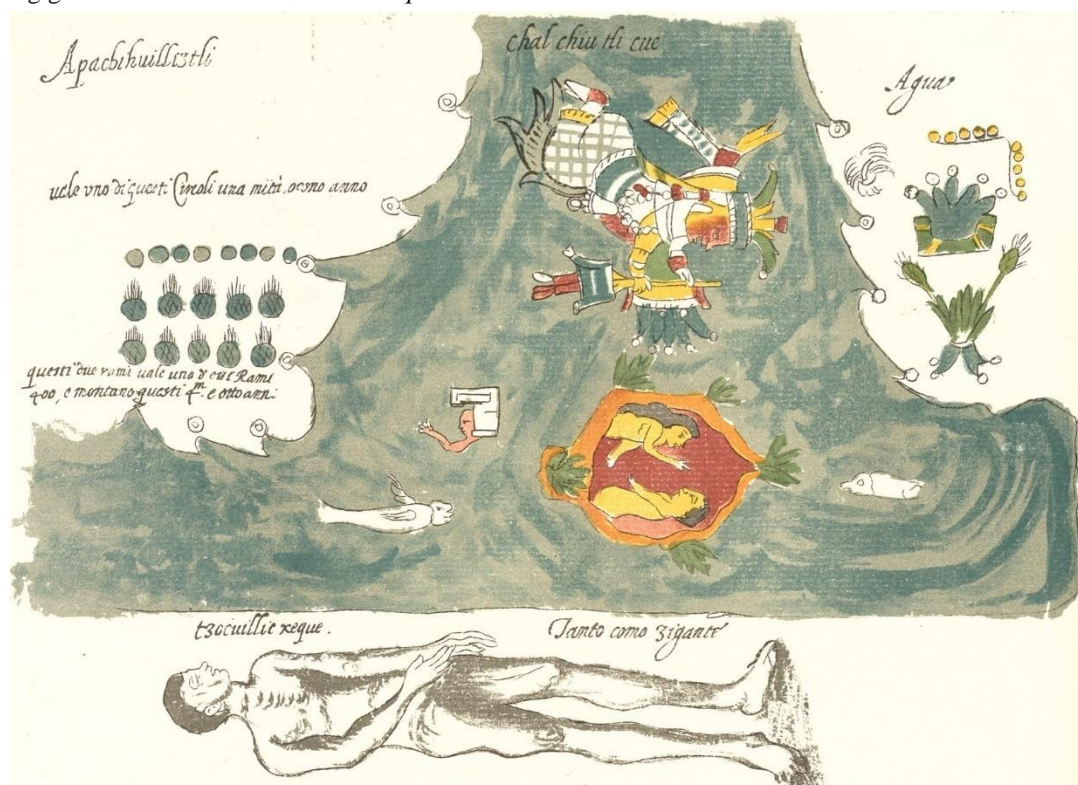 Apachihuiliztli
chal chiu tli cue
Agua
vale vno di questi Circoli una mità, overo anno
questi due rami vale uno d essi Rami
400, e montano questi 4m. e otto ann:
tzocuillic xeque.
Tanto como zigante